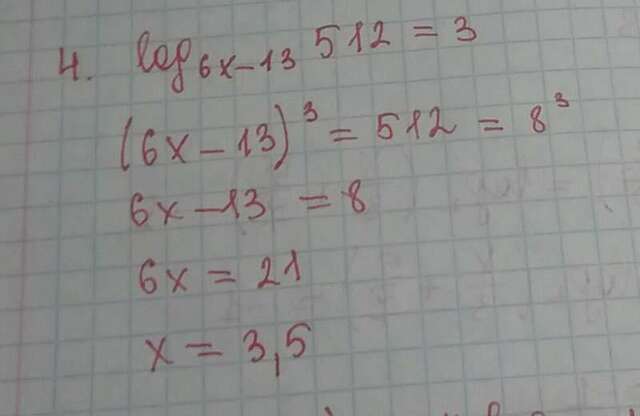 4. log₆ₓ₋₁₃ 512 = 3
(6x – 13)³ = 512 = 8³
6x – 13 = 8
6x = 21
x = 3,5